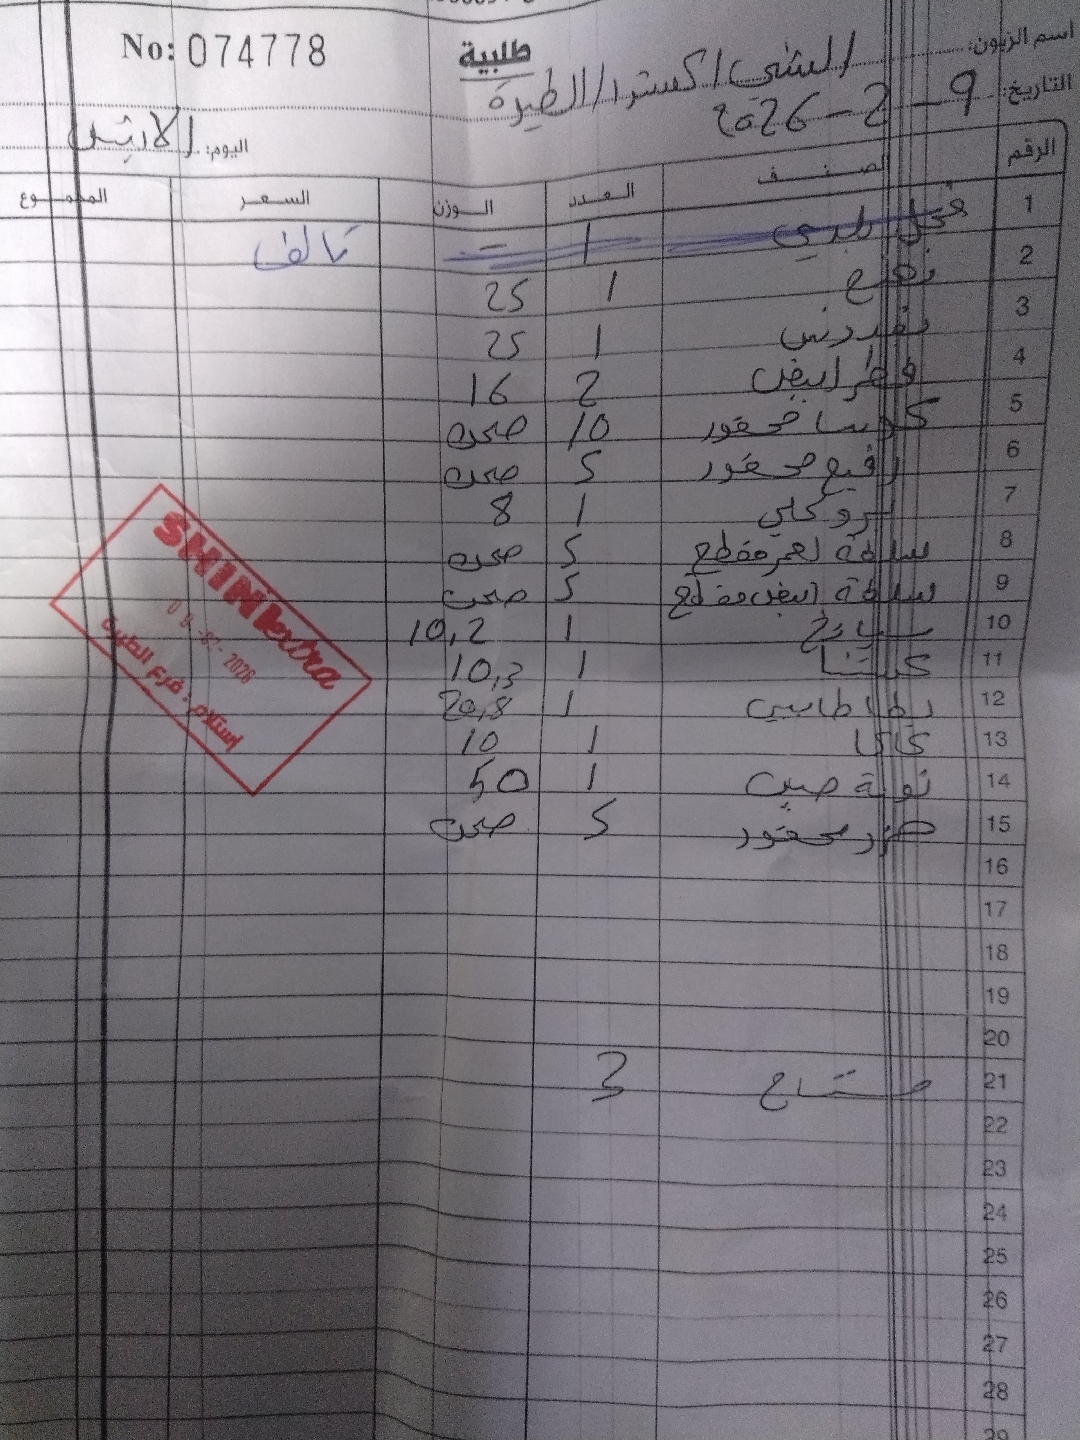 No: 074778
طلبية
اسم الزبون: الشني اكسترا/الطيرة
التاريخ: 9-2-2026
اليوم: الاثنين
الرقم الصنف العدد الوزن السعر المجموع
1 فجل بلدي 1 - تالف
2 نعنع 1 25
3 بقدونس 1 25
4 فطر ابيض 2 16
5 كوسا محفور 10 صحن
6 محفور 5 صحن
7 بروكلي 1 8
8 سلطة احمر مقطع 5 صحن
9 سلطة ابيض مقطع 5 صحن
10 سبانخ 1 10,2
11 1 10,3
12 بطاطا 1 20,8
13 كاكا 1 10
14 صين 1 50
15 جزر محفور 5 صحن
16
17
18
19
20
21 3
22
23
24
25
26
27
28
29
SHINIextra
09-02-2026
استلام - فرع الطيرة